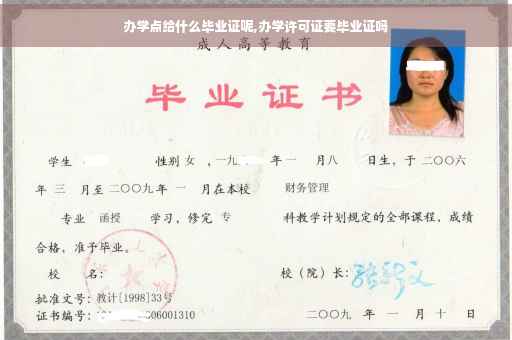 办学点给什么毕业证呢,办学许可证要毕业证吗
成人高等教育
毕业证书
学生 性别 女 ，一九 年 一 月 八 日生，于 二〇〇六
年 三 月至 二〇〇九 年 一 月在本校 财务管理
专业 函授 学习，修完 专 科教学计划规定的全部课程，成绩
合格，准予毕业。
校 名： 校（院）长：
批准文号：教计[1998]33号
证书编号： 006001310 二〇〇九 年 一 月 十 日